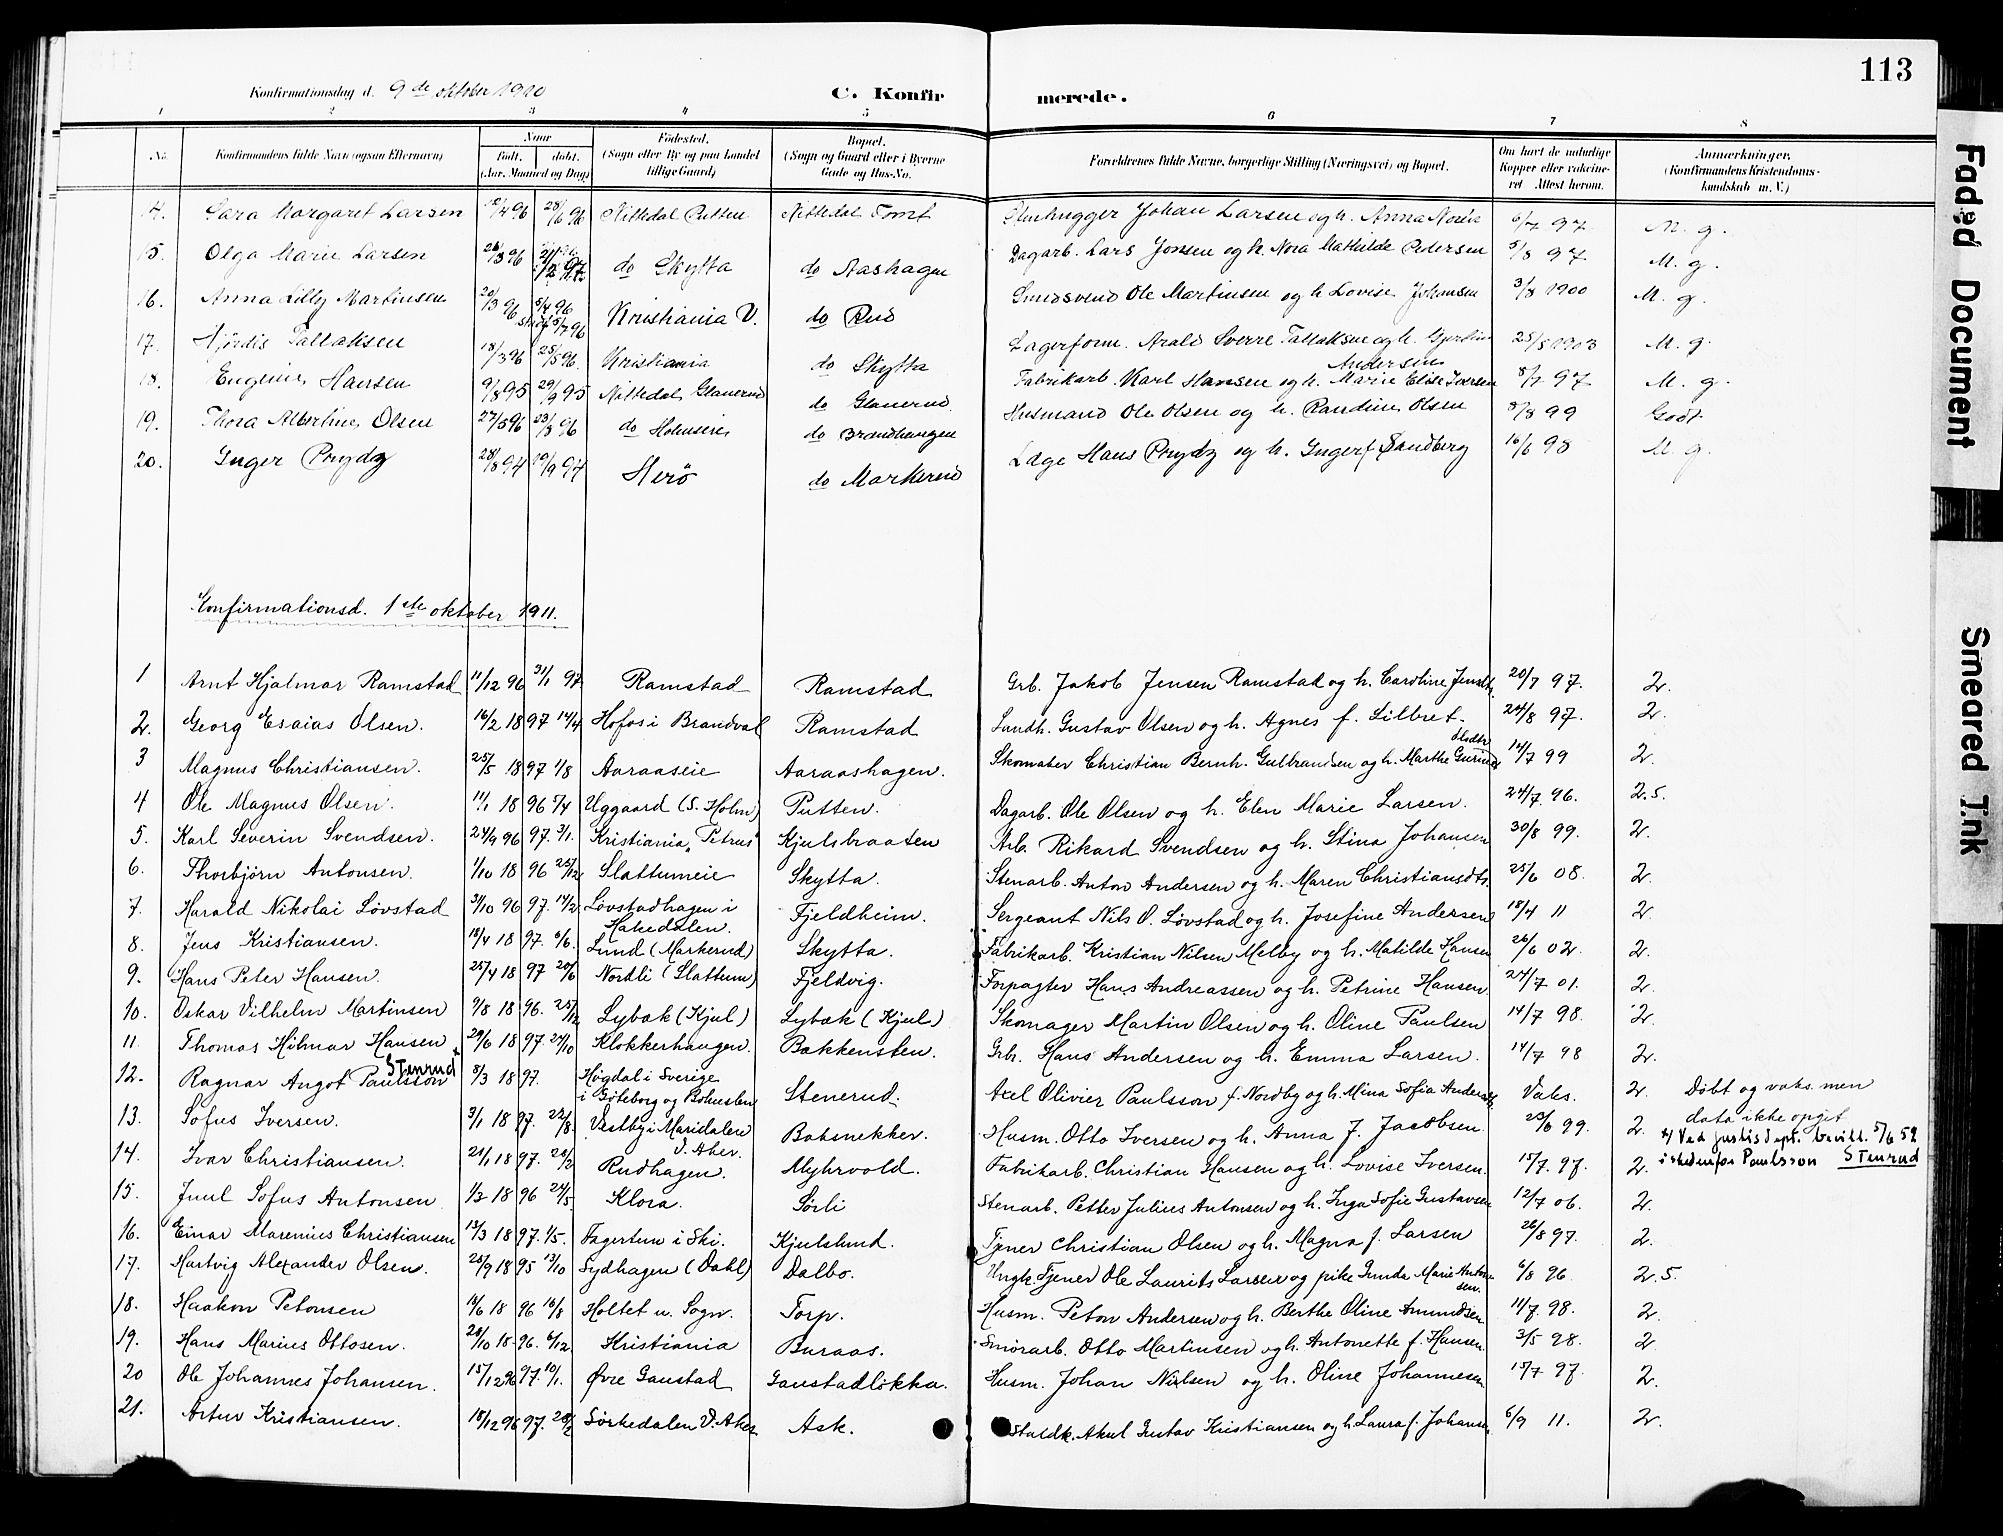 113
Konfirmationsdag d. 9de oktober 1910
C. Konfirmerede.
1 2 3 4 5 6 7 8
No.
Konfirmandens fulde Navn (ogsaa Efternavn)
Naar
født. døbt.
(Aar, Maaned og Dag)
Fødested.
(Sogn eller By og paa Landet
tillige Gaard)
Bopæl.
(Sogn og Gaard eller i Byerne
Gade og Hus-No.
Forældrenes fulde Navne, borgerlige Stilling (Næringsvei) og Bopæl.
Om havt de naturlige
Kopper eller vakcine-
ret Attest herom.
Anmærkninger.
(Konfirmandens Kristendoms-
kundskab m. V.)
14. Sara Margaret Larsen 12/4 96 28/6 96 Nittedal Putten Nittedal Tomt Stenhugger Johan Larsen og h. Anna 6/7 97 M. g.
15. Olga Marie Larsen 26/3 96 do Skytta do Aashagen Dagarb. Lars Jonsen og h. Nora Mathilde Petersen 5/8 97 M. g.
16. Anna Lilly Martinsen 20/3 96 5/4 96 5/7 96 Kristiania V. do Rud Smedsvend Ole Martinsen og h. Lovise Johansen 3/8 1900 M. g.
17. Hjördis Tallaksen 18/3 96 25/5 96. Kristiania do Skytta Lagerform. Arald Sverre Tallaksen og h. Andersen 25/5 1903 M. g.
18. Eugenie Hansen 9/8 95 29/9 95 Nittedal Glanerud do Glanerud Fabrikarb. Karl Hansen og h. Marie Elise Iversen 8/7 97 M. g.
19. Thora Albertine Olsen 27/5 96 23/8 96 do Holmseie do Brandhaugen Husmand Ole Olsen og h. Randine Olsen 8/8 99 Godt
20. Inger Prydz 28/8 94 19/9 94 Herö do Markerud Læge Hans Prydz og h. Inger f. Sandberg 16/6 98 M. g.
Confirmationsd. 1ste oktober 1911.
1 Arnt Hjalmar Ramstad 11/12 96 31/1 97 Ramstad Ramstad Grb. Jakob Jensen Ramstad og h. Caroline Jensdtr. 20/7 97. 2.
2. Georg Esaias Olsen. 16/2 18 97 14/4 Hofos i Brandval Ramstad Landh. Gustav Olsen og h. Agnes f. Lilbret. 24/8 97. 2.
3 Magnus Christiansen. 25/5 18 97 1/8 Aaraaseie Aaraashagen. Skomaker Christian Bernh. Gulbrandsen og h. Marthe 14/7 99 2.
4 Ole Magnus Olsen. 11/1 18 96 5/4 Uggaard (S. Holm) Putten. Dagarb. Ole Olsen og h. Elen Marie Larsen. 24/7 96. 2.5.
5. Karl Severin Svendsen. 24/9 96 97. 3/1. Kristiania "Petrus" Kjulsbraaten Arb. Rikard Svendsen og h. Stina Johansen 30/8 99. 2.
6. Thorbjörn Antonsen. 1/10 18 96 25/12 Slattumeie Skytta. Stenarb. Anton Andersen og h. Maren Christiansdtr. 25/6 08. 2.
7. Harald Nikolai Lövstad 3/10 96 97. 14/2 Lövstadhagen i Hakedalen. Fjeldheim. Sergeant Nils O. Lövstad og h. Josefine Andersen 18/4 11 2.
8. Jens Kristiansen. 18/4 18 97. 6/6. Lund (Markerud) Skytta. Fabrikarb. Kristian Nilsen Melby og h. Matilde Hansen 26/6 02. 2.
9. Hans Peter Hansen. 25/4 18 97 20/6 Nordli (Slattum) Fjeldvig. Forpagter Hans Andreassen og h. Petrine Hansen 24/7 01. 2.
10. Oskar Vilhelm Martinsen 9/8 18 96. 25/12 Lybæk (Kjul) Lybæk (Kjul) Skomager Martin Olsen og h. Oline Paulsen 14/7 98. 2.
11. Thomas Hilmar Hansen 29/6 18 97. 24/10 Klokkerhaugen. Bakkensten. Grb. Hans Andersen og h. Emma Larsen. 14/7 98 2.
12. Ragnar Angot Paulsson Stenrud 8/3 18 97. Högdal i Sverige i Göteborg og Bohuslen Stenerud. Axel Olivier Paulsson f. Nordby og h. Mina Sofia Andersdtr. Vaks. 2. Döbt og vaks. men
data ikke opgit
13. Sofus Iversen. 3/1 18 97. 22/8. Vestby i Maridalen V. Aker. Bobsnekker. Husm. Otto Iversen og h. Anna J. Jacobsen 23/6 99. 2.
x/ Ved justisdept. bevill. 5/6 52
istedenfor Paulsson Stenrud
14. Ivar Christiansen. 21/1 18 97. 28/2 Rudhagen. Myhrvold. Fabrikarb. Christian Hansen og h. Lovise Iversen. 15/7. 97. 2.
15. Juul Sofus Antonsen 1/3 18 96 24/5 Klora. Sörli Stenarb. Petter Julius Antonsen og h. Inga Sofie Gustavsen 12/7 06. 2.
16. Einar Marenius Christiansen 13/3 18 97. 1/5. Fagertun i Ski. Kjulslund. Tjener Christian Olsen og h. Magna f. Larsen 26/8 97. 2.
17. Hartvig Alexander Olsen. 25/9 18 95 13/10 Sydhagen (Dahl) Dalbo. Ungk. Tjener Ole Laurits Larsen og pike Gunda Marie Antonsen. 6/8 96. 2.5.
18. Haakon Petonsen 14/6 18 96 16/8 Holtet u. Sogn. Torp. Husm. Peton Andersen og h. Berthe Oline Amundsen 11/7. 98. 2.
19. Hans Marius Ottosen. 20/10 18. 96. 6/12 Kristiania Buraas. Smörarb. Otto Martinsen og h. Antonette f. Hansen. 3/5 98. 2
20 Ole Johannes Johansen. 15/12 96 97. 10/1. Øvre Gaustad Gaustadløkka. Husm. Johan Nielsen og h. Oline Johannesen 15/7 97. 2.
21. Artur Kristiansen. 18/12 96 97. 28/2 Sörkedalen V. Aker Ask. Staldk. Aksel Gustav Kristiansen og h. Laura f. Johansen 6/9 11. 2.
Faded Document
Smeared Ink